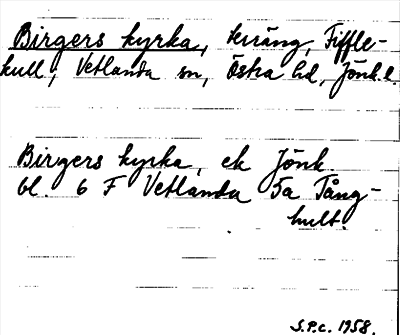 Birgers kyrka, terräng, Fiffle-
kull, Vetlanda sn, Östra hd, Jönk.l.
Birgers kyrka, ek Jönk
bl. 6 F Vetlanda 5a Tång-
hult.
S.P.c. 1958.